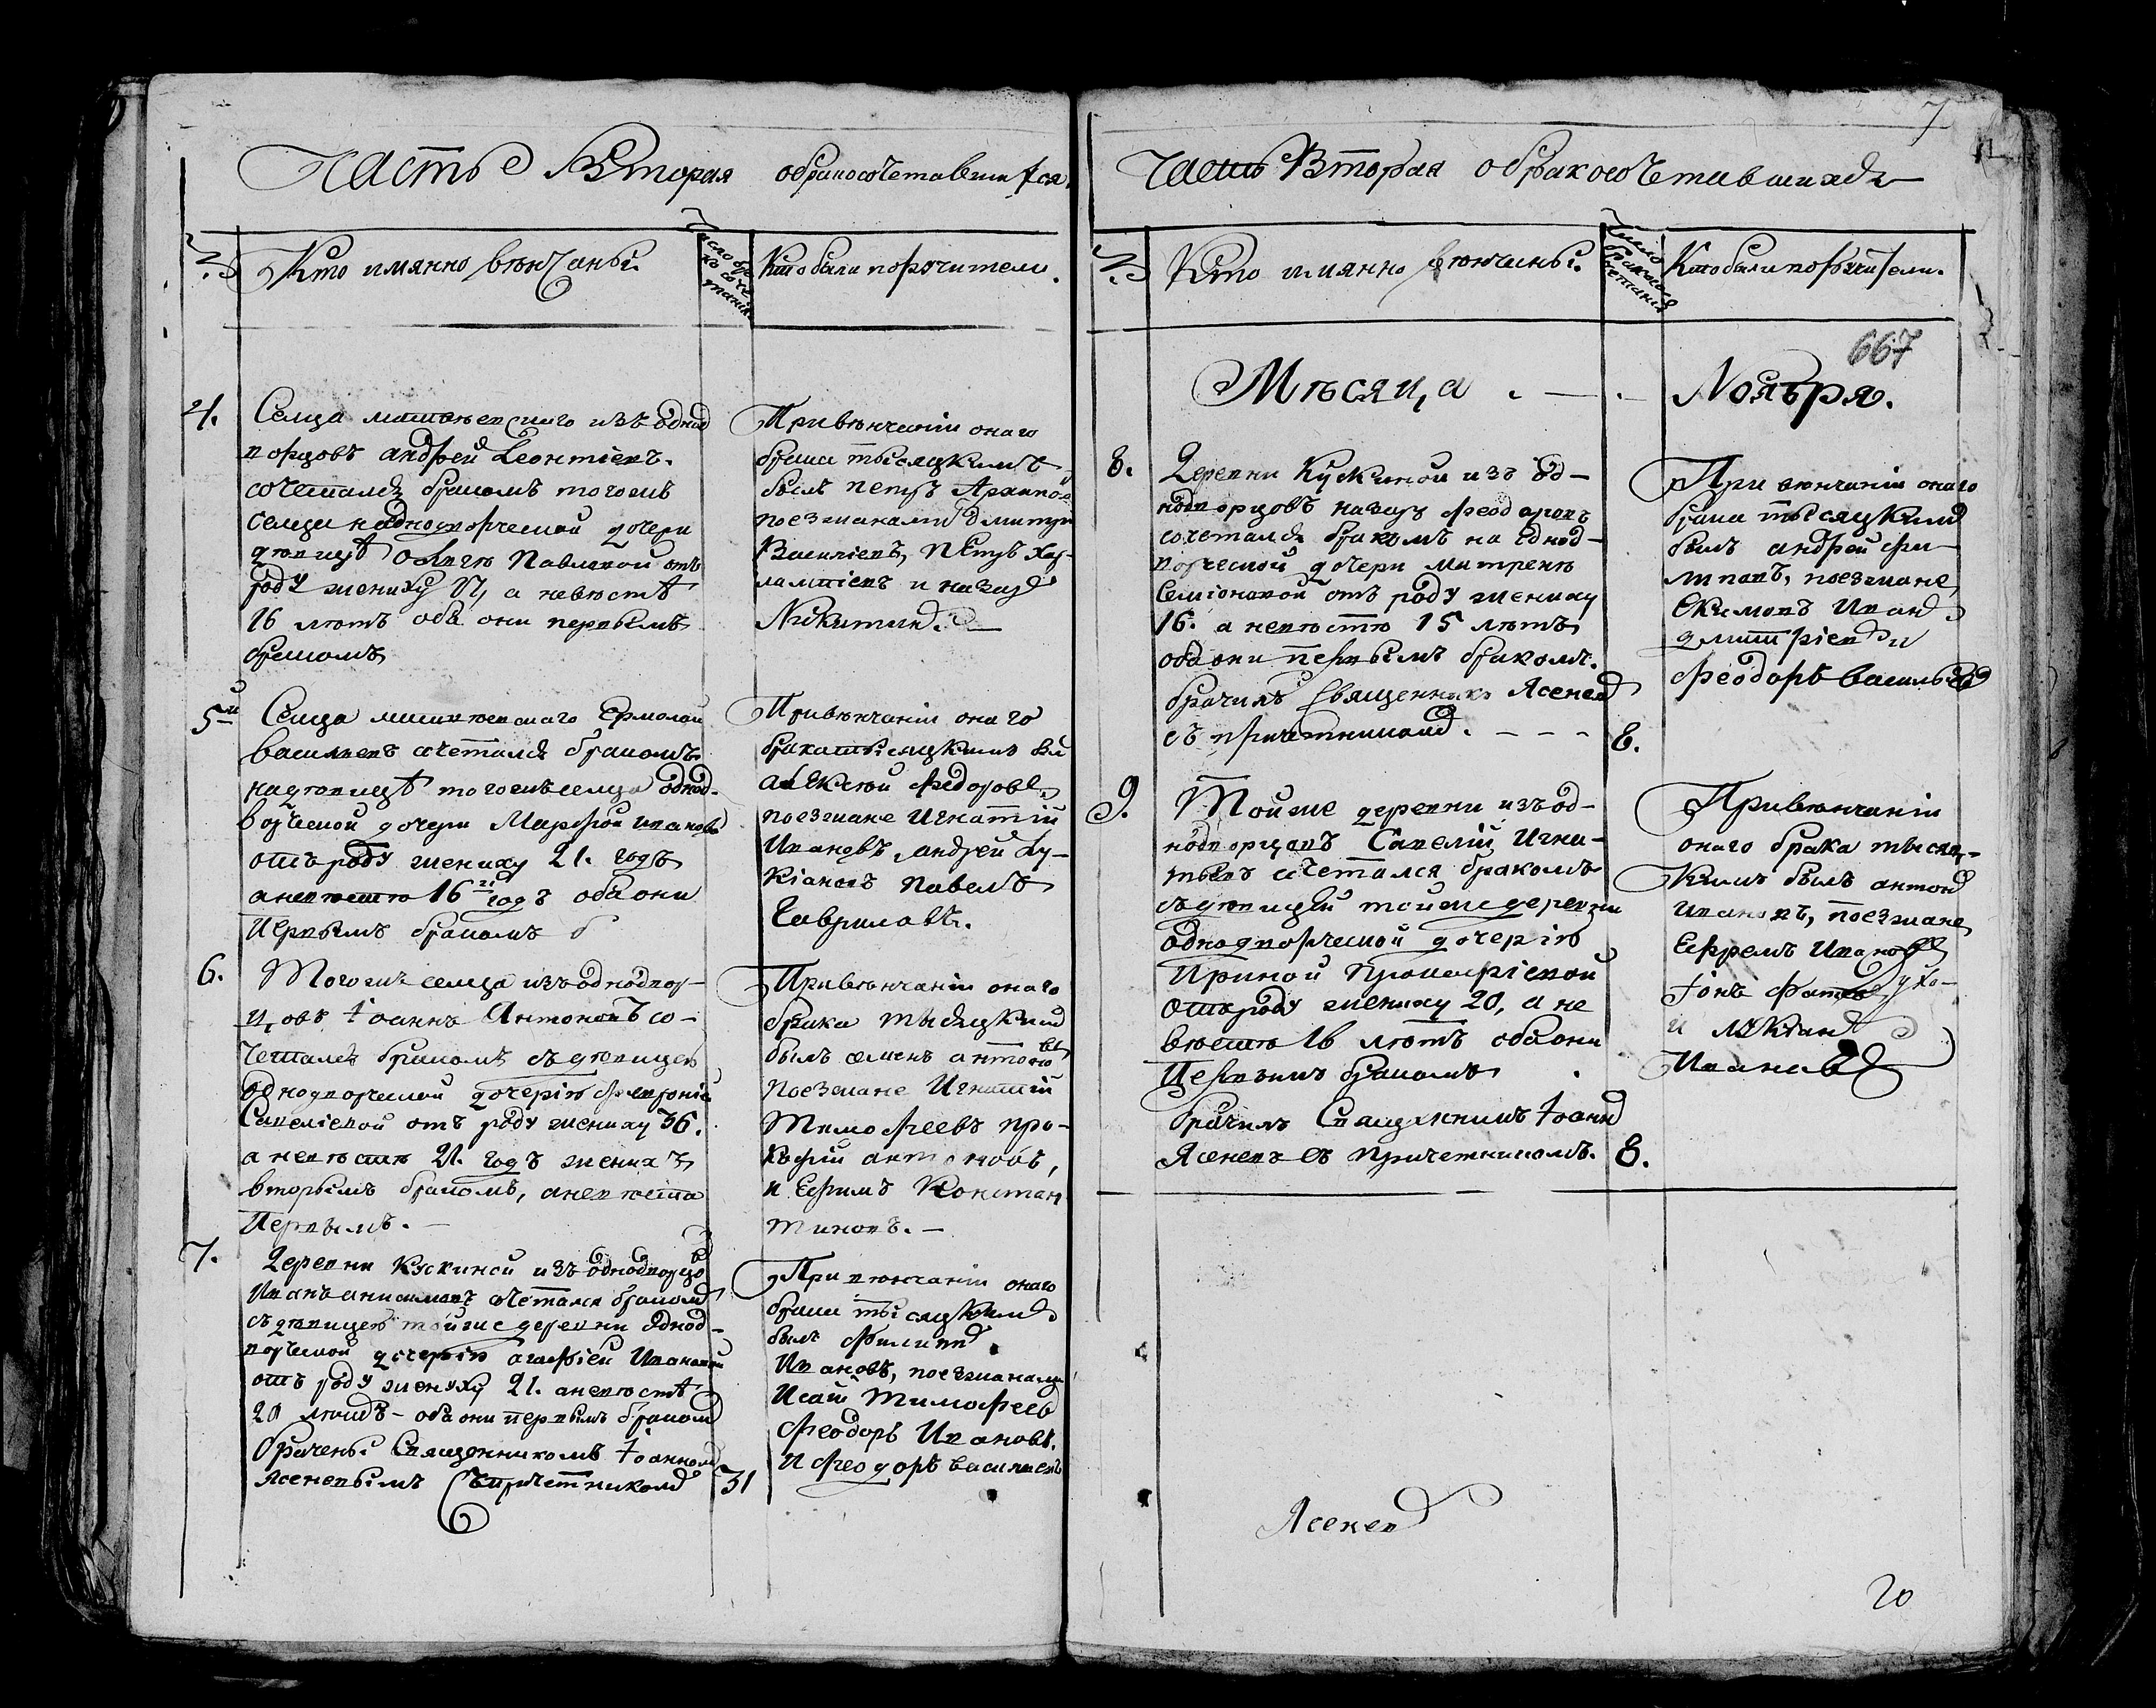 Часть Вторая о бракосочетавшихся
№
Кто имянно венчаны:
Число бра
косоче
тания.
Кто были поручители.
4.
Селца из однод
ворцовъ андрей Леонтіевъ.
сочетался бракомъ тогожъ
селца на однодворческой дочери
девицѣ Павловой отъ
роду жениху а невестѣ
16 лѣтъ оба они первымъ
бракомъ
При венчаніи онаго
брака тысяцкимъ
былъ петръ
поезжанами Дмитрій
Василіевъ, петръ Хар-
лампіевъ и назаръ
Никитинъ.
5й
Селца Ермолай
василіевъ сочетался бракомъ
на девицѣ тогожъ селца однод-
ворческой дочери Марфой ивановой
отъ роду жениху 21. годъ
а невесте 16 годъ оба они
первымъ бракомъ
При венчаніи онаго
брака тысяцкимъ былъ
алексѣй Федоровъ
поезжане Игнатій
Ивановъ, андрей Лу-
кіановъ павелъ
Гавриловъ.
6.
Тогожъ селца изъ однодвор-
цовъ Іоаннъ Антоновъ со-
четался бракомъ съ девицею
однодворческой дочерію февроніей
Савеліевой отъ роду жениху 36.
а невесте 21. годъ женихъ
вторымъ бракомъ, а невеста
первымъ.
При венчаніи онаго
брака тысяцкимъ
былъ семенъ антоновъ
поезжане Игнатій
Тимофеевъ про-
кофій антоновъ,
и Ефимъ Констан
тиновъ.
7.
Деревни Кускиной изъ однодворцовъ
Иванъ анисимовъ сочетался бракомъ
съ девицею тойже деревни однод-
ворческой дочерію агафіей Ивановой
отъ роду жениху 21. а невестѣ
20 летъ - оба они первымъ бракомъ
брачены Священникомъ Іоанномъ
Ясеневымъ съ причетникомъ
31
При венчаніи онаго
брака тысяцкимъ
былъ филиппъ
Ивановъ, поезжанами
Исай Тимофеевъ
Феодоръ Ивановъ.
и Феодоръ василіевъ
7
Часть Вторая о бракосочетавшихся
№
Кто имянно венчаны:
Число
бракосо
четания
Кто были поручители.
667
Мѣсяца Ноября.
8.
Деревни Кускиной изъ од-
нодворцовъ назаръ феодоровъ
сочетался бракомъ на однод-
ворческой дочери матрене
Семіоновой отъ роду жениху
16. а невесте 15 летъ
оба они первымъ бракомъ.
брачилъ священникъ Ясеневъ
съ причетникомъ.
8.
При венчаніи онаго
брака тысяцкимъ
былъ андрей фи-
липовъ, поезжане
Екимовъ Иванъ
дмитріевъ и
феодоръ василіевъ
9.
Тойже деревни изъ од-
нодворцовъ Савелій Игна-
тьевъ сочетался бракомъ
съ девицей тойже деревни
однодворческой дочерію
Ириной Прокофіевой
отъ роду жениху 20, а не
весте 16 летъ оба они
первымъ бракомъ
брачилъ Священникъ Іоаннъ
Ясеневъ съ причетникомъ.
8.
При венчаніи
онаго брака тысяц-
кимъ былъ антонъ
ивановъ, поезжане
Ефремъ Ивановъ
и лукіанъ
Ивановъ
Ясеневъ
20